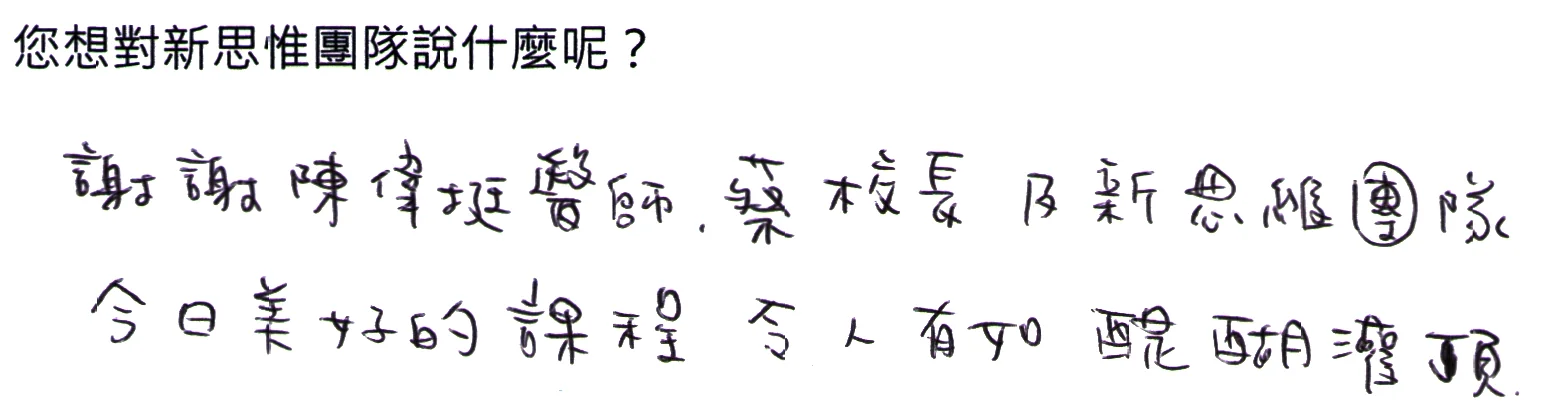 您想對新思惟團隊說什麼呢？
謝謝陳偉挺醫師、蔡校長及新思維團隊
今日美好的課程 令人有如醍醐灌頂.